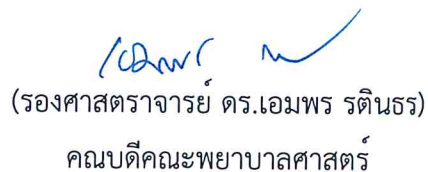 (รองศาสตราจารย์ ดร.เอมพร รตินธร)
คณบดีคณะพยาบาลศาสตร์